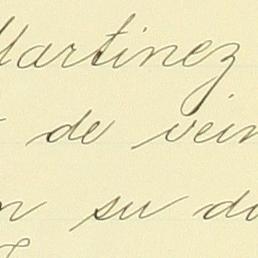 Martinez
de vein
su do